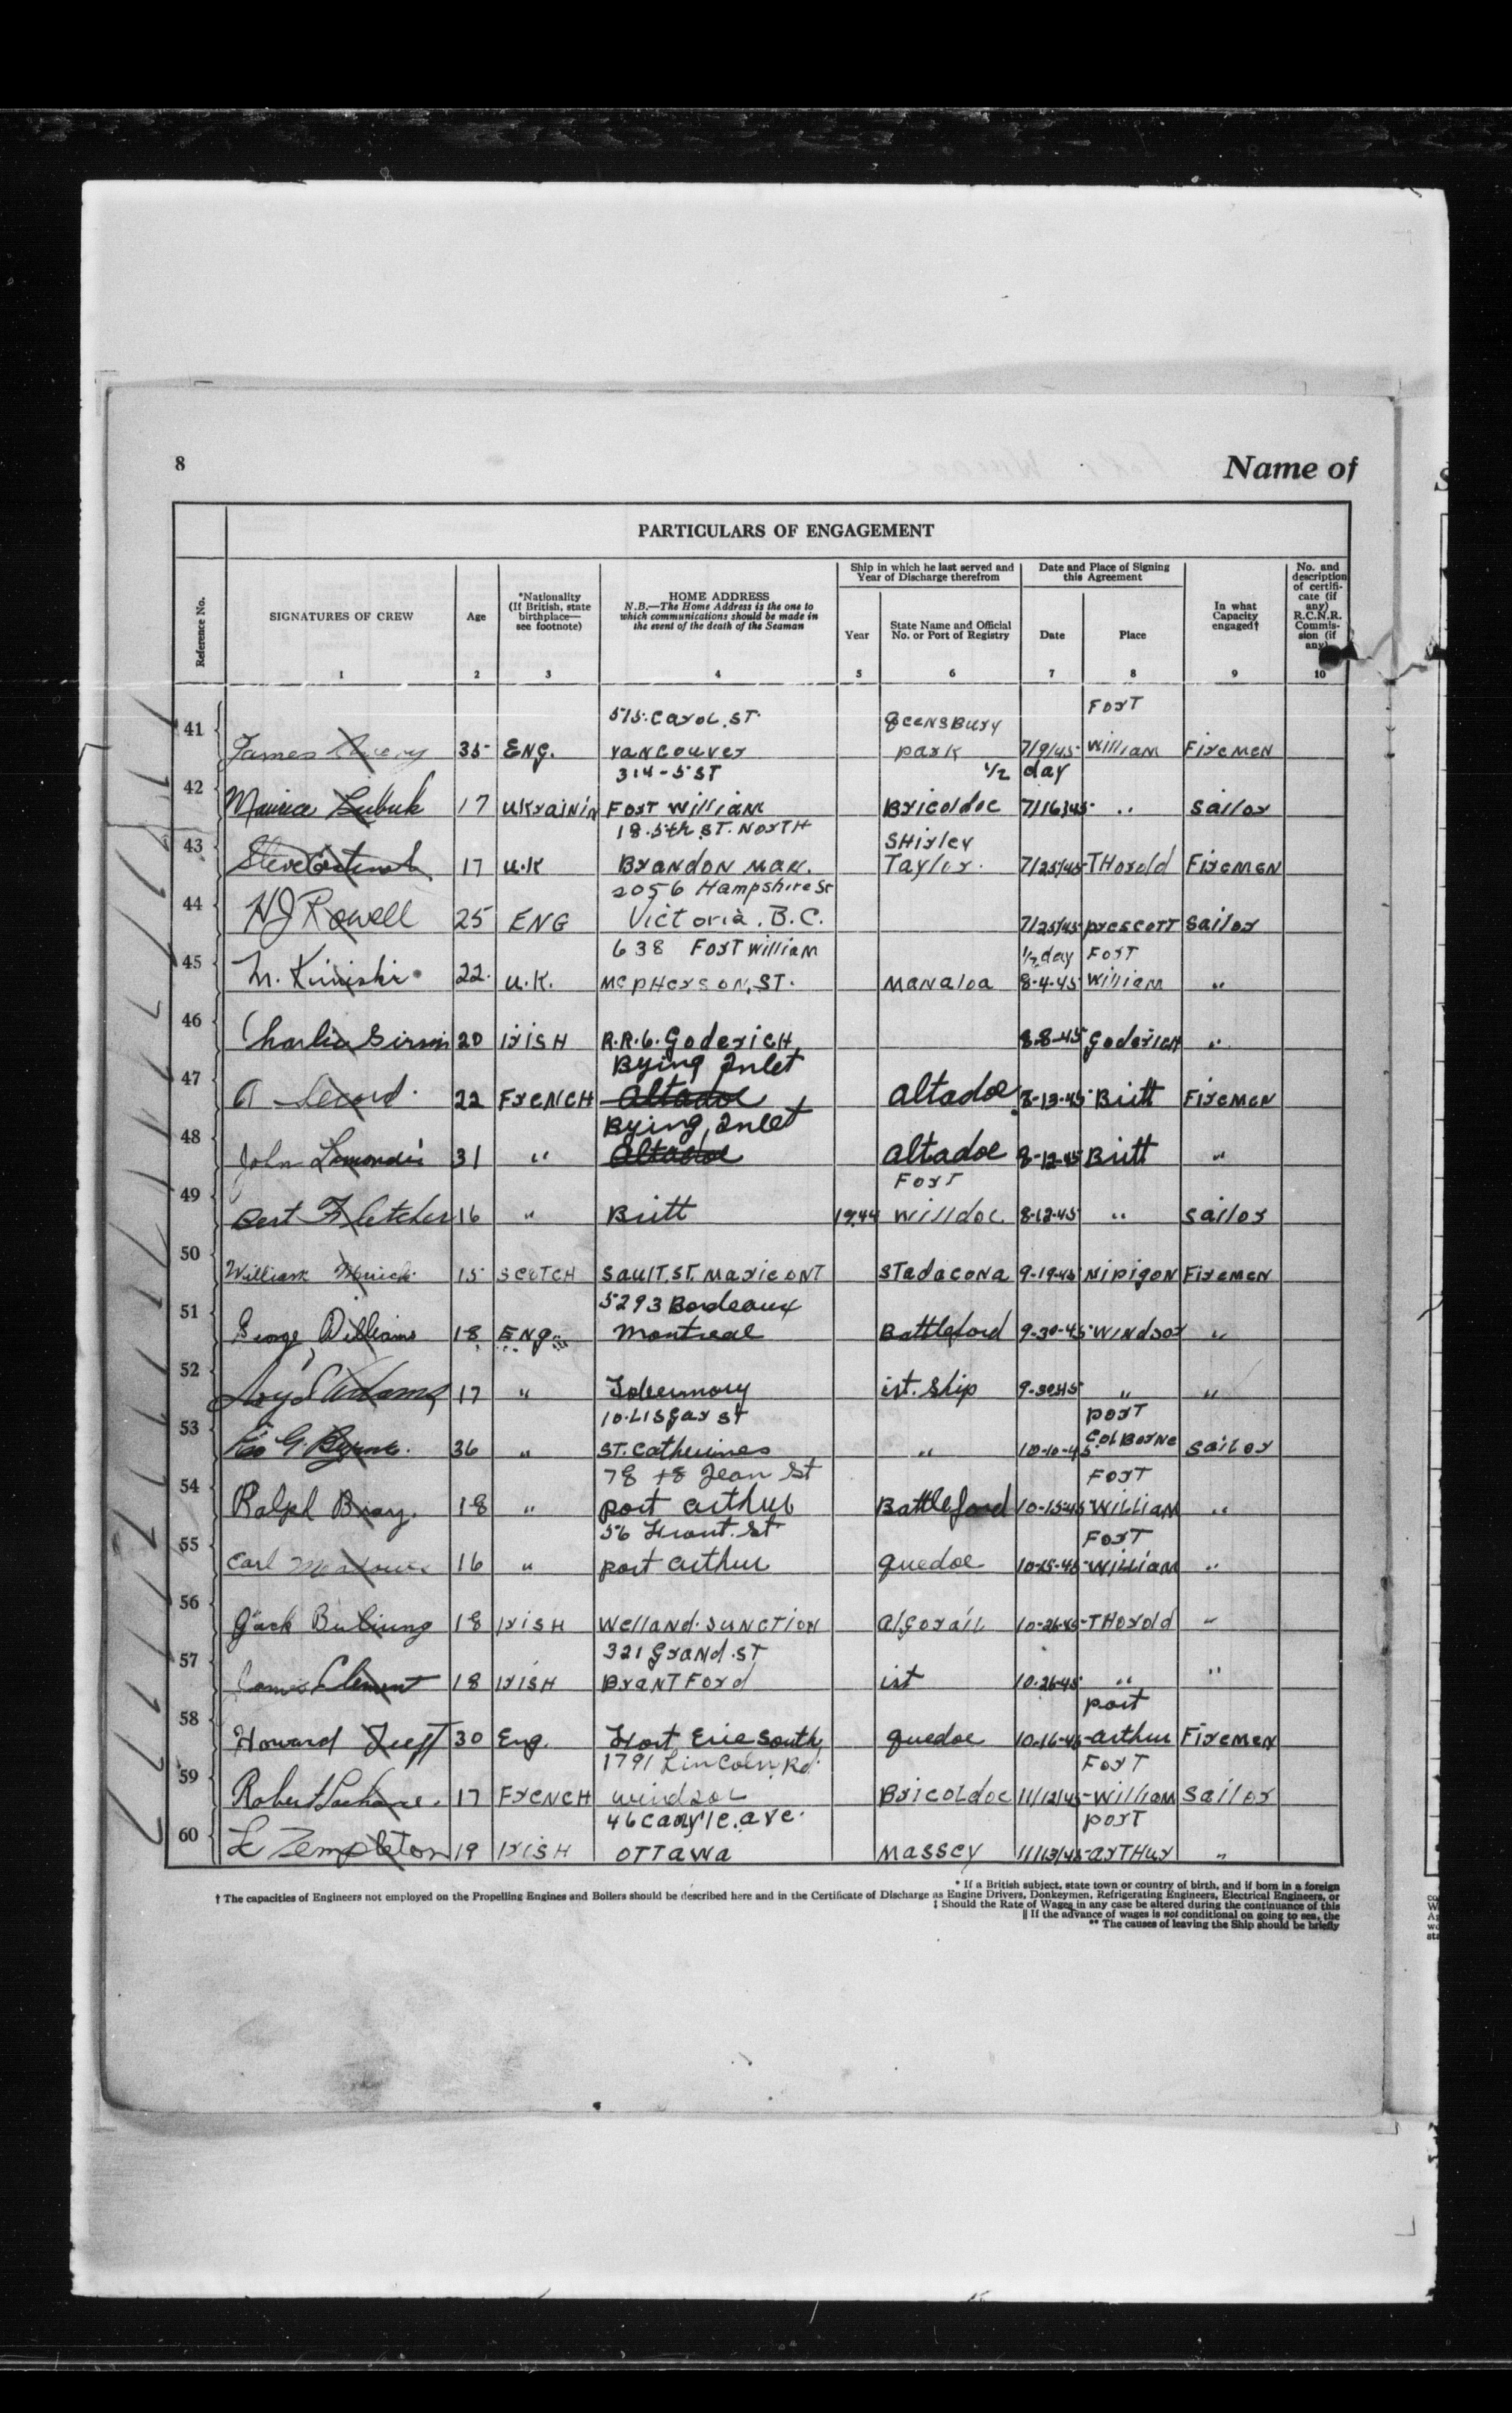 8
Name of
PARTICULARS OF ENGAGEMENT
Reference No.
SIGNATURES OF CREW
1
Age
2
*Nationality
(If British, state
birthplace—
see footnote)
3
HOME ADDRESS
N.B.—The Home Address is the one to
which communications should be made in
the event of the death of the Seaman
4
Ship in which he last served and
Year of Discharge therefrom
Year
5
State Name and Official
No. or Port of Registry
6
Date and Place of Signing
this Agreement
Date
7
Place
8
In what
Capacity
engaged†
9
No. and
description
of certifi-
cate (if
any)
R.C.N.R.
Commis-
sion (if
any)
10
515. Carol. ST. QeensBury Fort
41 James 35 ENG. Vancouver park 7/9/45 William Firemen
314-5 ST 1/2 day
42 17 Ukrainin Fort William Bricoldoc 7/16/45 " Sailor
18.5th ST. North Shirley
43 Steve 17 U.K Brandon Man. Taylor. 7/25/45 THorold Firemen
2056 Hampshire St
44 HJ Rowell 25 ENG Victoria. B.C. 7/25/45 prescott Sailor
638 Fort William 1/2 day Fort
45 22. U.K. McPHerson, ST. Manaloa 8-4-45 William "
46 Charlie 20 irisH R.R.6. GodericH, 8-8-45 GodericH "
Bying Inlet
47 A 22 FrencH Altadoc Altadoc 8-13-45 Britt Firemen
Bying, Inlet
48 John 31 " Altadoc Altadoc 8-12-45 Britt "
Fort
49 Bert Fletcher 16 " Britt 1944 Willdoc 8-12-45 " Sailor
50 William 15 ScotcH Sault. St. Marie ONT Stadacona 9-19-45 Nipigon Firemen
5293 Bordeaux
51 George Williams 18 Eng. Montreal Battleford 9-30-45 Windsor "
52 Adams 17 " Tobermory ist. Ship 9-30-45 " "
10. Lisgar St port
53 G. Byrne. 36 " ST. Catherines " 10-10-45 Colborne Sailor
78 +8 Jean St Fort
54 Ralph Bray. 18 " port arthur Battleford 10-15-45 William "
56 Front. St Fort
55 Carl 16 " port arthur quedoc 10-15-45 William "
56 Jack 18 irisH Welland. Junction Algorail 10-26-45 THorold "
321 Grand. ST
57 James Clement 18 irisH BrantFord ist 10-26-45 " "
port
58 Howard 30 Eng. Fort Erie South quedoc 10-16-45 arthur Firemen
1791 Lincoln Rd. Fort
59 Robert 17 FrencH Windsor Bricoldoc 11/12/45 William Sailor
46 Ave. port
60 L Templeton 19 irisH OTTawa Massey 11/13/45 arTHur "
* If a British subject, state town or country of birth, and if born in a foreign
† The capacities of Engineers not employed on the Propelling Engines and Boilers should be described here and in the Certificate of Discharge as Engine Drivers, Donkeymen, Refrigerating Engineers, Electrical Engineers, or
‡ Should the Rate of Wages in any case be altered during the continuance of this
|| If the advance of wages is not conditional on going to sea, the
** The causes of leaving the Ship should be briefly